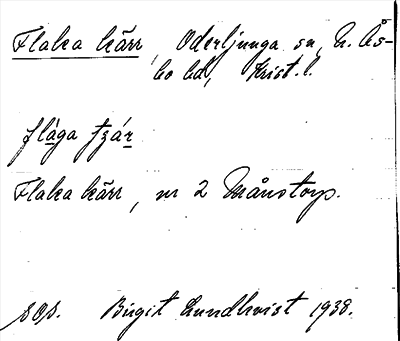 Flaka kärr, Oderljunga sn, N. Ås-
bo hd, Krist. l.
flåga tzár
Flaka kärr, nr 2 Månstorp.
SOS. Birgit Lundkvist 1938.